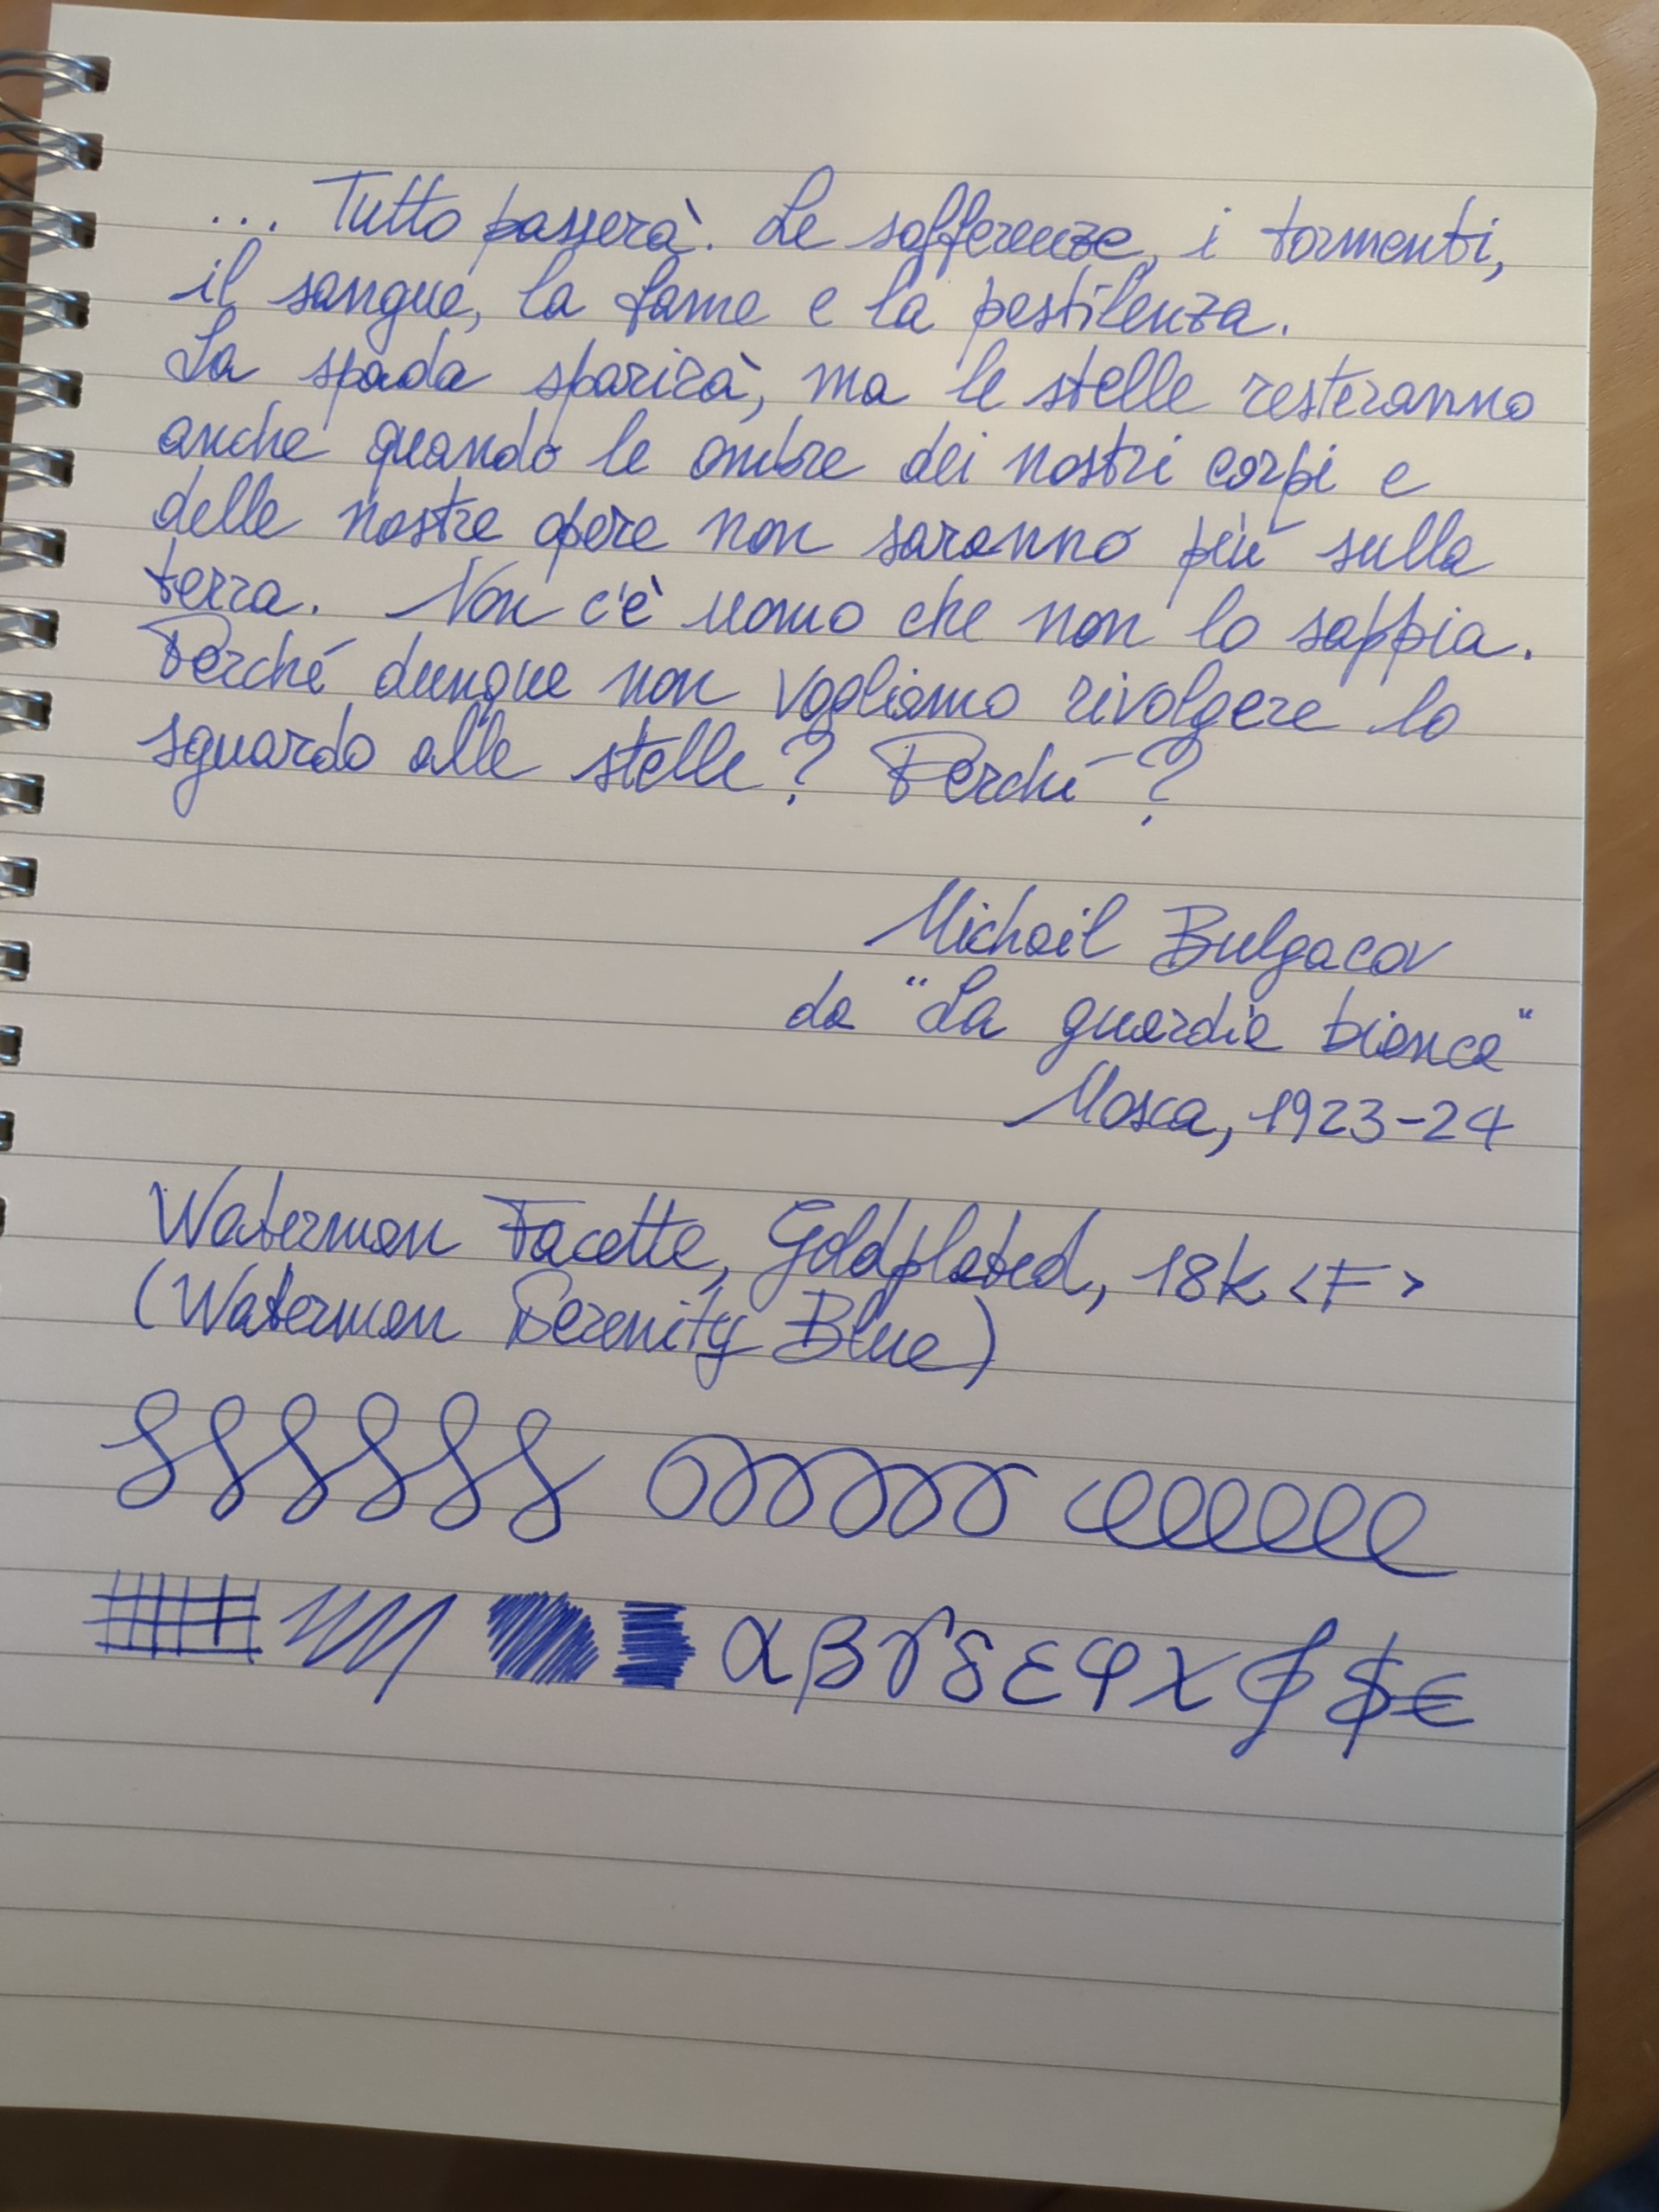 ... Tutto passerà. Le sofferenze, i tormenti,
il sangue, la fame e la pestilenza.
La spada sparirà, ma le stelle resteranno
anche quando le ombre dei nostri corpi e
delle nostre opere non saranno più sulla
terra. Non c'è uomo che non lo sappia.
Perché dunque non vogliamo rivolgere lo
sguardo alle stelle? Perché?
Michail Bulgacov
da "La guardia bianca"
Mosca, 1923-24
Waterman Facette, Goldplated, 18k <F>
(Waterman Serenity Blue)
α β γ δ ε φ χ $ €